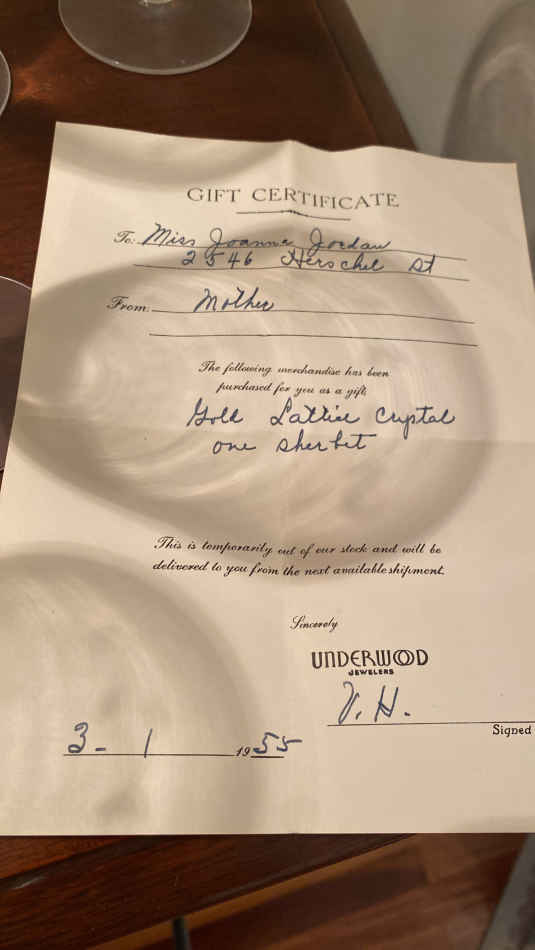 GIFT CERTIFICATE
To: Miss Joanne Jordan
2546 Herschel St
From: Mother
The following merchandise has been
purchased for you as a gift
Gold Lattice Crystal
one sherbet
This is temporarily out of our stock and will be
delivered to you from the next available shipment.
Sincerely
UNDERWOOD
JEWELERS
V. H.
Signed
3 - 1 1955